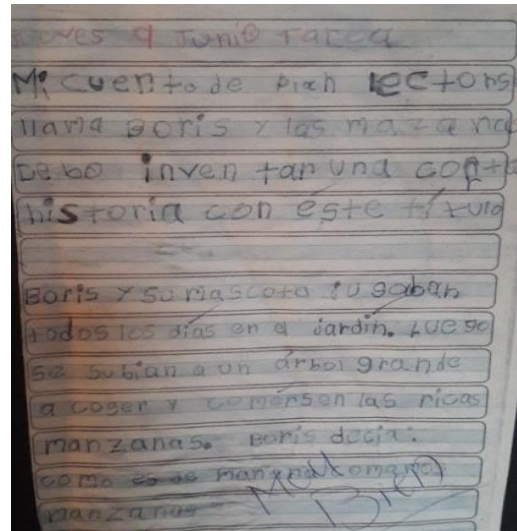 Jueves 9 Junio Tarea
Mi cuento de Plan lectors
llama Boris y las mazana
Debo inventar una corta
historia con este título
Boris y su mascota jugaban
todos los días en el jardín. Luego
se subían a un árbol grande
a coger y comersen las ricas
manzanas. Boris decía:
como es de
manzanas
Muy Bien